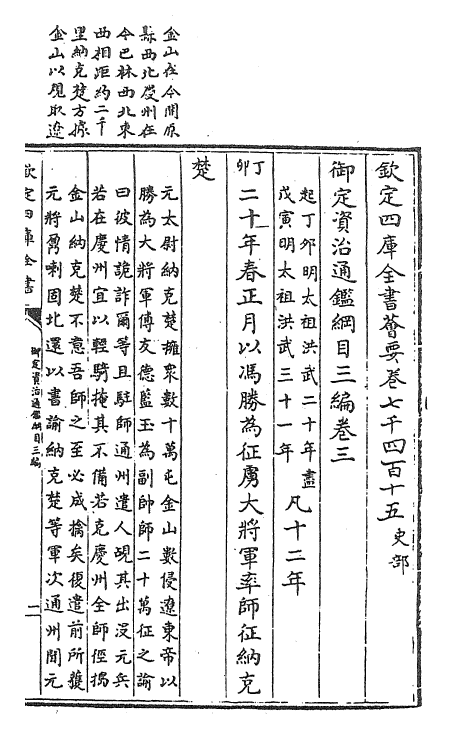 金山在今開原
縣西北慶州在
今巴林西北東
西相距約二千
里納克楚方據
金山以覬取遼
欽定四庫全書薈要卷七千四百十五 史部
御定資治通鑑綱目三編卷三
起丁夘明太祖洪武二十年盡
戊寅明太祖洪武三十一年 凡十二年
丁夘 二十年春正月以馮勝為征虜大將軍率師征納克
楚
元太尉納克楚擁衆數十萬屯金山數侵遼東帝以
勝為大將軍傅友德藍玉為副帥師二十萬征之諭
曰彼情詭詐爾等且駐師通州遣人覘其出沒元兵
若在慶州宜以輕騎掩其不備若克慶州全師徑搗
金山納克楚不意吾師之至必成擒矣復遣前所獲
元將鼐喇固北還以書諭納克楚等軍次通州聞元
欽定四庫全書
御定資治通鑑綱目三編
一